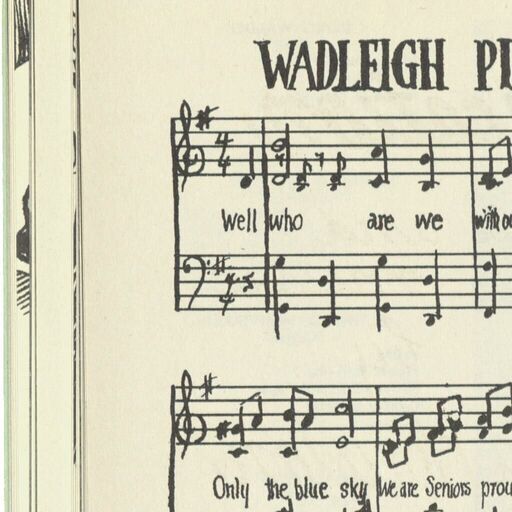 WADLEIGH
Well who are we
Only the blue sky We are Seniors